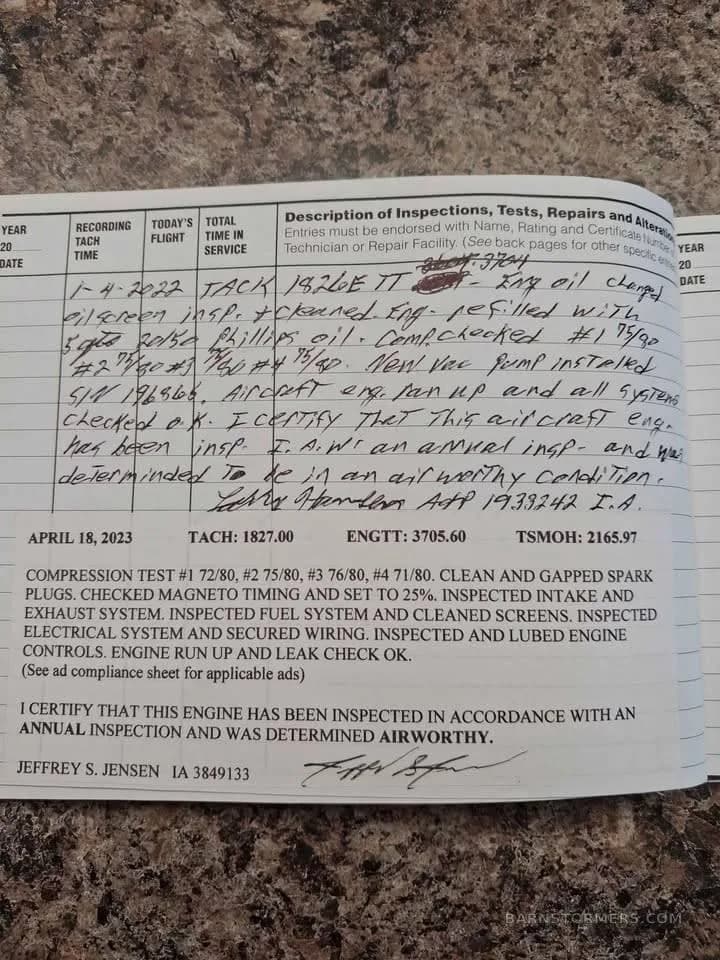 YEAR
20
DATE
RECORDING
TACH
TIME
TODAY'S
FLIGHT
TOTAL
TIME IN
SERVICE
Description of Inspections, Tests, Repairs and Alteration
Entries must be endorsed with Name, Rating and Certificate Number
Technician or Repair Facility. (See back pages for other specific entries
YEAR
20
DATE
3704
1-4-2022 TACK 1826E TT - Eng oil changed
oil screen insp. & cleaned Eng- refilled with
5 qts 20/50 Phillips oil. Comp. checked #1 75/80
#2 75/80 #3 75/80 #4 75/80. New vac pump installed
S/N 196866. Aircraft eng. ran up and all systems
checked o.K. I certify That This aircraft eng.
has been insp- I.A.W. an annual insp- and was
determinded To be in an airworthy condition.
A&P 1933242 I.A.
APRIL 18, 2023 TACH: 1827.00 ENGTT: 3705.60 TSMOH: 2165.97
COMPRESSION TEST #1 72/80, #2 75/80, #3 76/80, #4 71/80. CLEAN AND GAPPED SPARK
PLUGS. CHECKED MAGNETO TIMING AND SET TO 25%. INSPECTED INTAKE AND
EXHAUST SYSTEM. INSPECTED FUEL SYSTEM AND CLEANED SCREENS. INSPECTED
ELECTRICAL SYSTEM AND SECURED WIRING. INSPECTED AND LUBED ENGINE
CONTROLS. ENGINE RUN UP AND LEAK CHECK OK.
(See ad compliance sheet for applicable ads)
I CERTIFY THAT THIS ENGINE HAS BEEN INSPECTED IN ACCORDANCE WITH AN
ANNUAL INSPECTION AND WAS DETERMINED AIRWORTHY.
JEFFREY S. JENSEN IA 3849133
BARNSTORMERS.COM